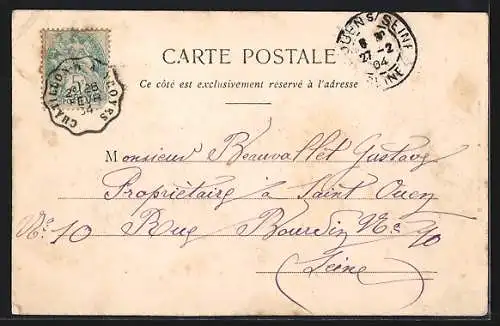 CHATILLON A TROYES
26
FEVR
04
ST OUEN S/ SEINE
27-2
04
SEINE
CARTE POSTALE
Ce côté est exclusivement réservé à l'adresse
Monsieur Beauvallet Gustave
Propriétaire à Saint Ouen
No. 10 Rue Bourdin No. 10
Seine